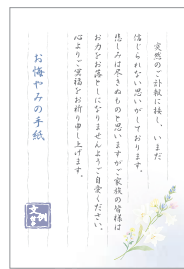 突然のご訃報に接し、いまだ
信じられない思いがしております。
悲しみは尽きぬものと思いますがご家族の皆様は
お力をお落としになりませんようご自愛ください。
心よりご冥福をお祈り申し上げます。
お悔やみの手紙
文例